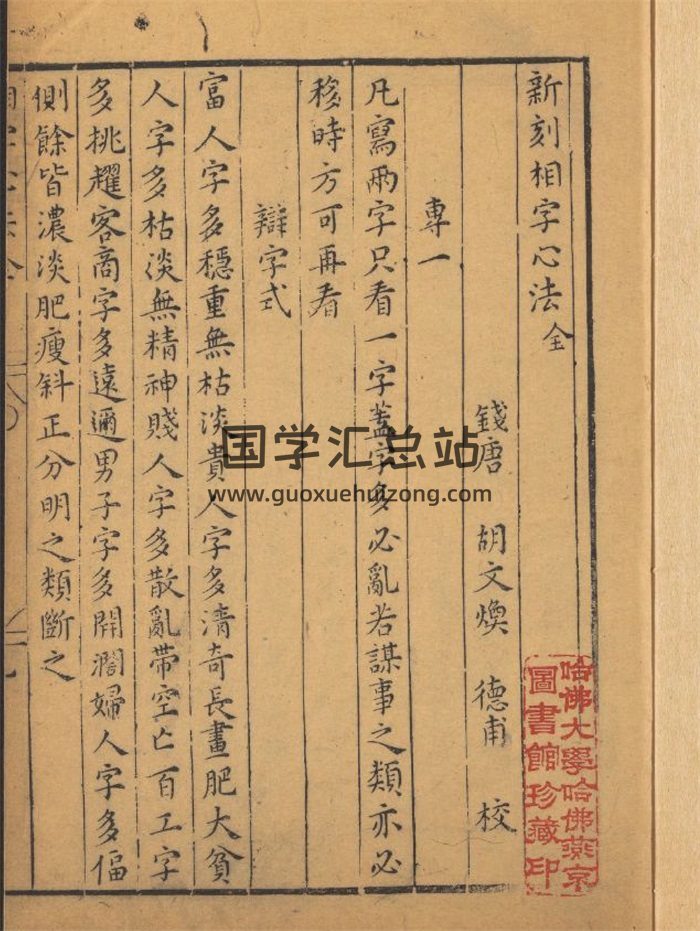 新刻相字心法 全
錢唐 胡文煥 德甫 校
專一
凡寫兩字只看一字蓋字多必亂若謀事之類亦必
移時方可再看
辯字式
富人字多穩重無枯淡貴人字多清奇長畫肥大貧
人字多枯淡無精神賤人字多散亂帶空亡百工字
多挑趯客商字多遠邇男子字多開濶婦人字多偪
側餘皆濃淡肥瘦斜正分明之類斷之
哈佛大學哈佛燕京
圖書館珍藏印
国学汇总站
www.guoxuehuizong.com